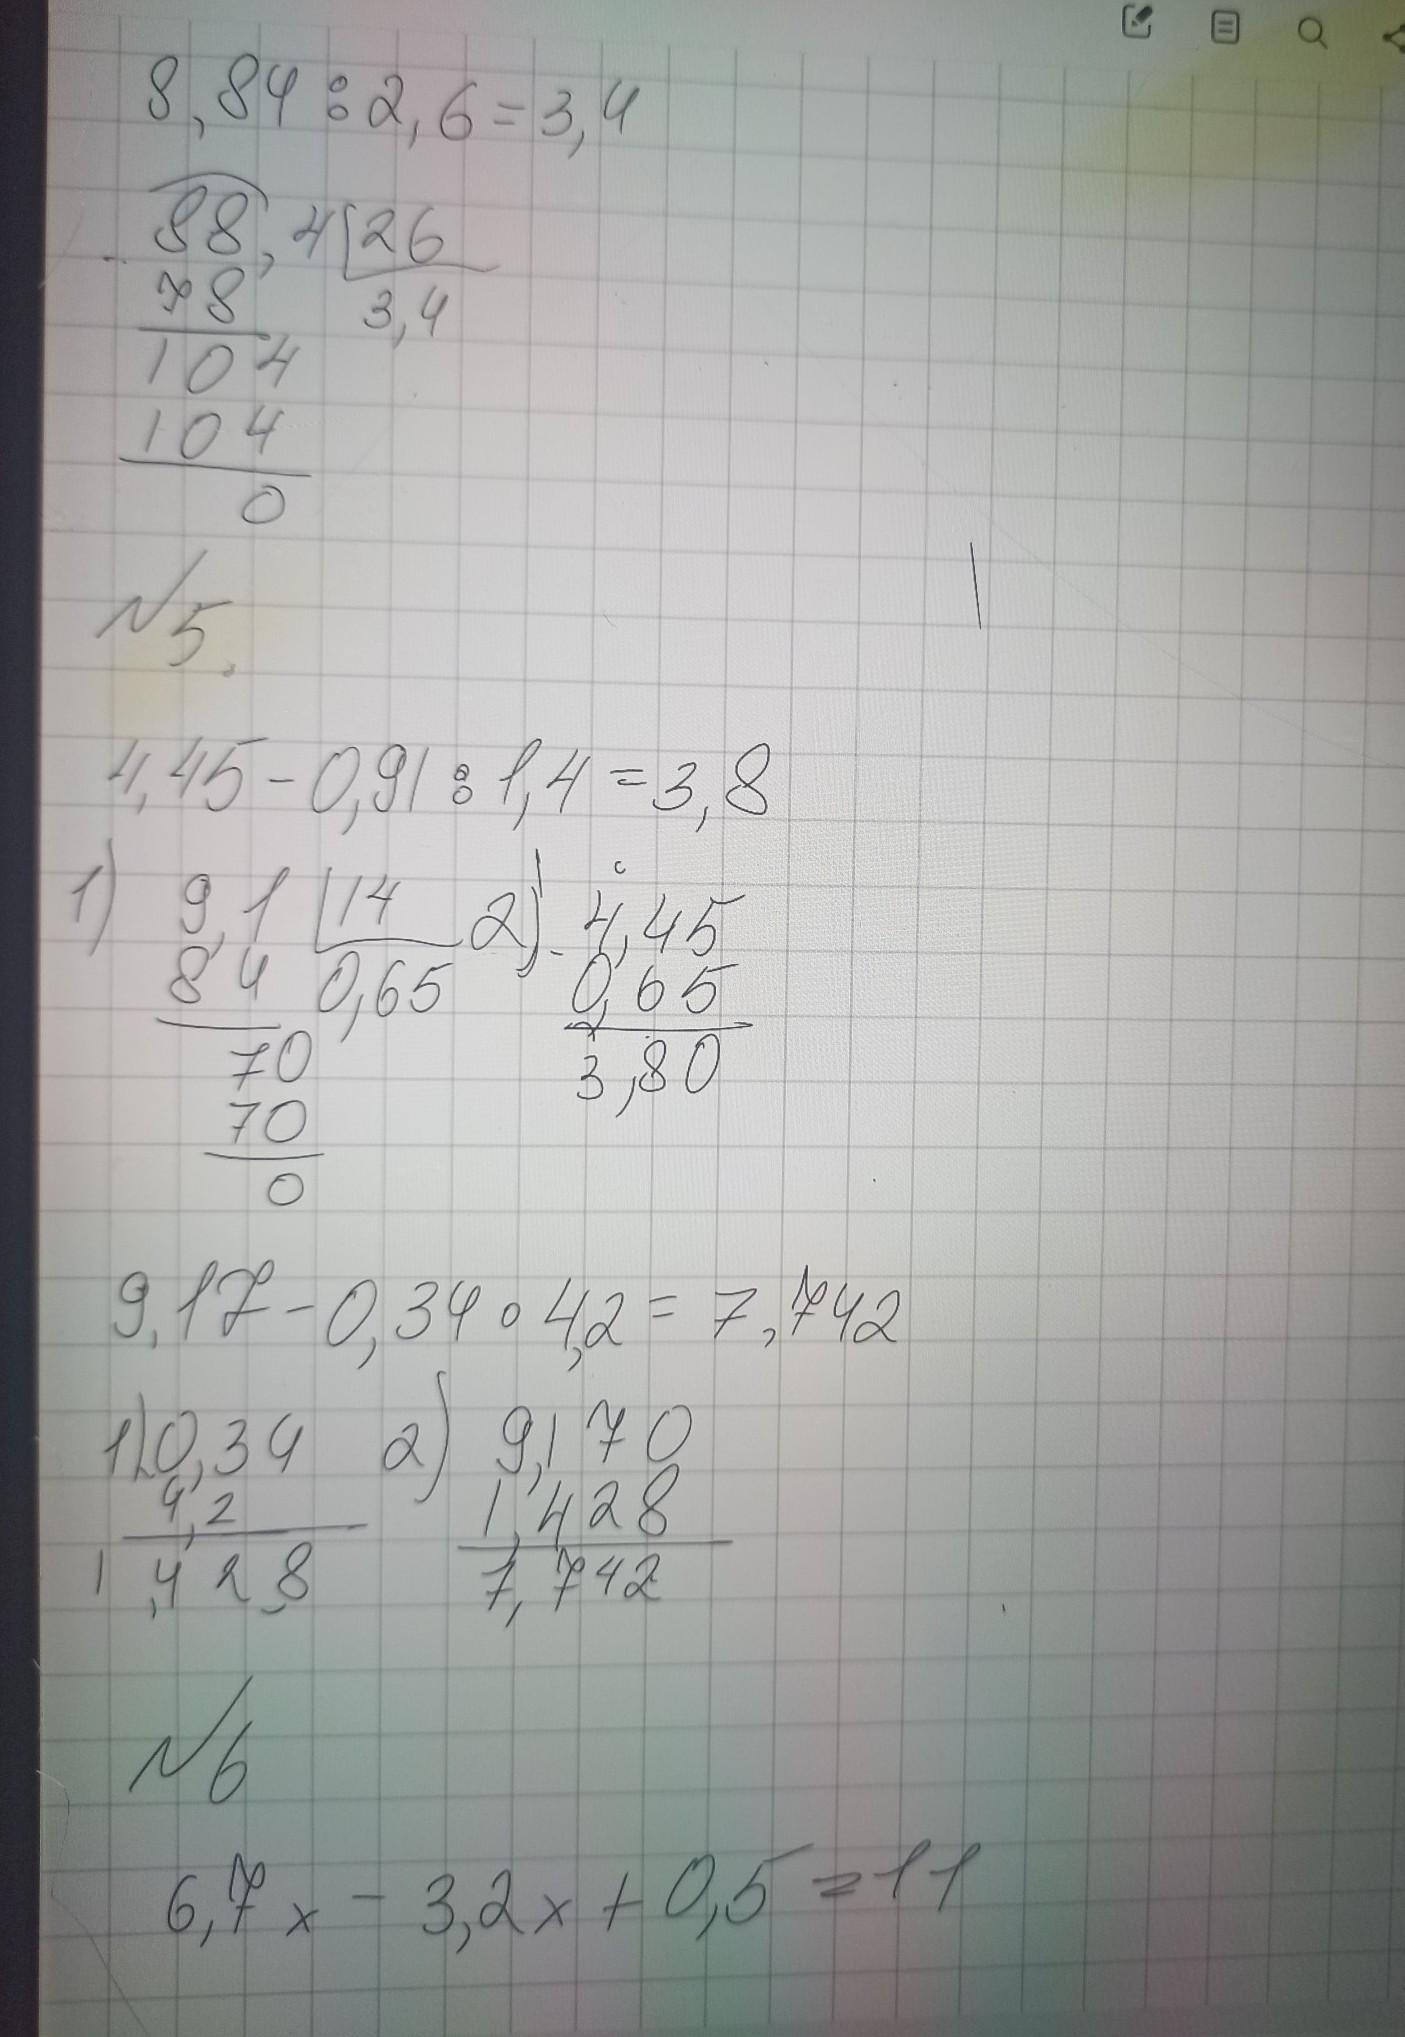 8,84 : 2,6 = 3,4
88,4 | 26
78 3,4
104
104
0
№5.
4,45 - 0,91 : 1,4 = 3,8
1) 9,1 | 14 2) - 4,45
84 0,65 0,65
70 3,80
70
0
9,17 - 0,34 · 4,2 = 7,742
1) 0,34 2) 9,170
4,2 1,428
1,428 7,742
№6
6,7x - 3,2x + 0,5 = 11